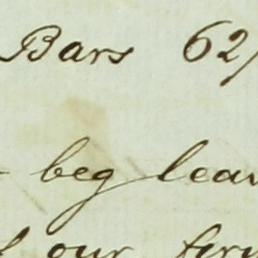 Bars 62/
beg leav
our firm